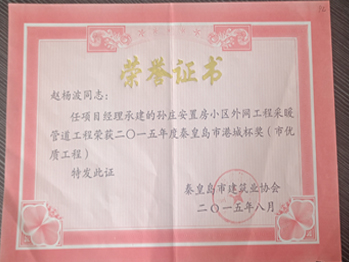 荣誉证书
赵杨波同志：
任项目经理承建的孙庄安置房小区外网工程采暖
管道工程荣获二〇一五年度秦皇岛市港城杯奖（市优
质工程）
特发此证
秦皇岛市建筑业协会
二〇一五年八月